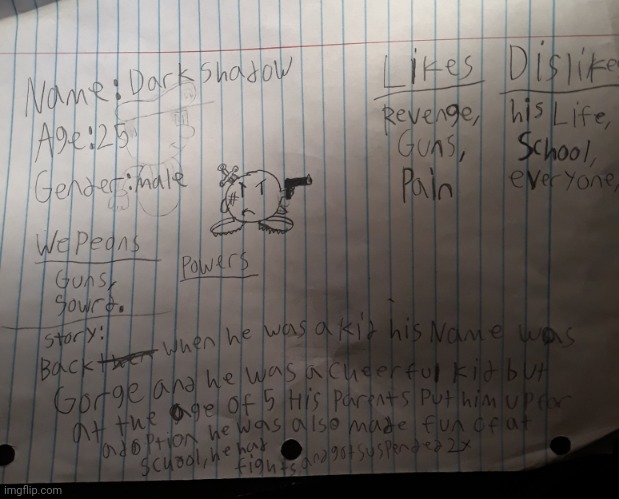 Name: Dark shadow
Age: 25
Gender: male
Likes
Revenge,
Guns,
Pain
Dislike
his Life,
School,
everyone,
Wepeons
Guns,
Sowrd.
Powers
Story:
Back when he was a kid his Name was
Gorge and he was a cheerful kid but
at the age of 5 His Parents Put him up for
adoption he was also made fun of at
school, he had
fights, and got suspended 2x
imgflip.com